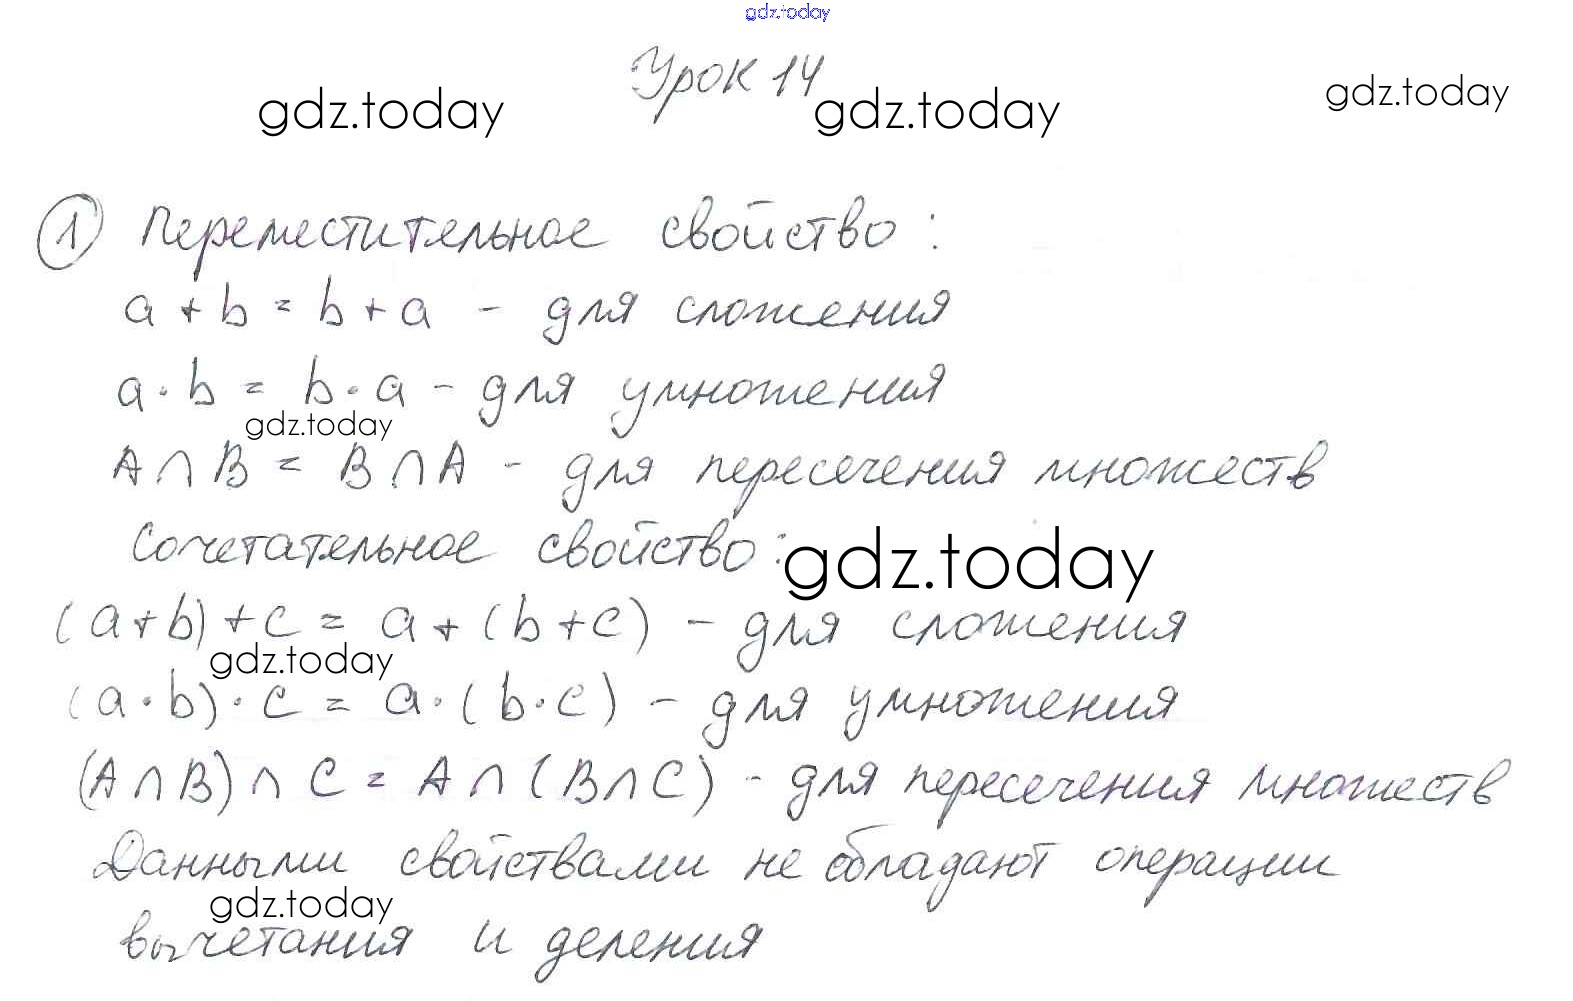 gdz.today
Урок 14
gdz.today gdz.today gdz.today
1 Переместительное свойство:
a + b = b + a - для сложения
a · b = b · a - для умножения
gdz.today
A ∩ B = B ∩ A - для пересечения множеств
Сочетательное свойство:
gdz.today
(a+b)+c = a+(b+c) - для сложения
gdz.today
(a·b)·c = a·(b·c) - для умножения
(A∩B)∩C = A∩(B∩C) - для пересечения множеств
Данными свойствами не обладают операции
gdz.today
вычетания и деления